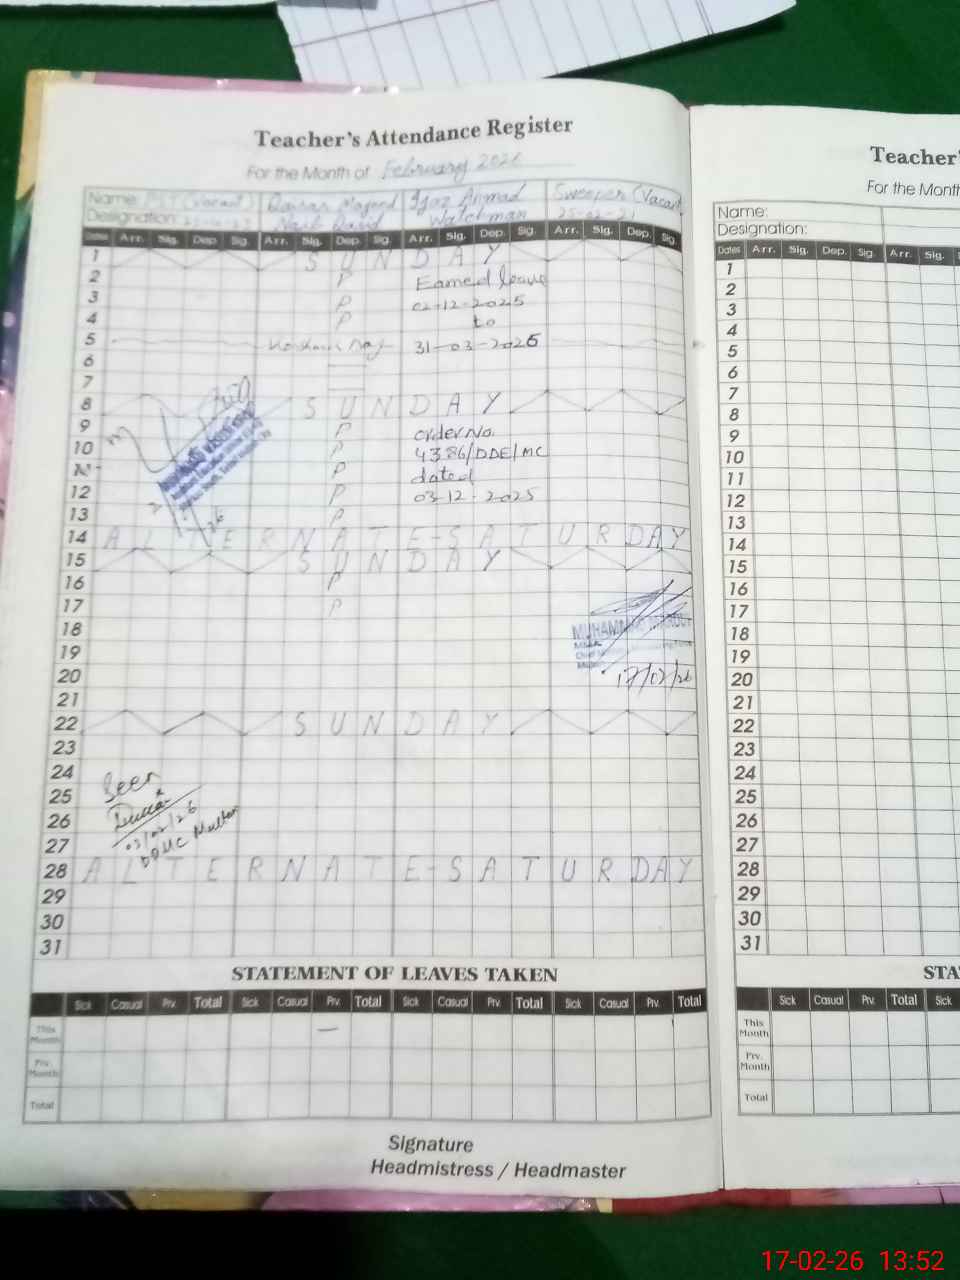 Teacher's Attendance Register
For the Month of February 2026
Name: (Vacant) Qaisar Majeed Ijaz Ahmad Sweeper (Vacant)
Designation: Naib Qasid Watchman 25-02-21
Dates Arr. Sig. Dep. Sig. Arr. Sig. Dep. Sig. Arr. Sig. Dep. Sig. Arr. Sig. Dep. Sig.
1 SUNDAY
2 P Earned leave
3 P 02-12-2025
4 P to
5 Kashmir Day 31-03-2026
6
7
8 SUNDAY
9 P order No.
10 P 4386/DDE/MC
P dated
12 P 03-12-2025
13 P
14 ALTERNATE-SATURDAY
15 SUNDAY
16 P
17 P
18 MUHAMMAD
19
20 17/02/26
21
22 SUNDAY
23
24 Seen
25
26 03/02/26
27 Multan
28 ALTERNATE-SATURDAY
29
30
31
STATEMENT OF LEAVES TAKEN
Sick Casual Prv. Total Sick Casual Prv. Total Sick Casual Prv. Total Sick Casual Prv. Total
This Month —
Prv. Month
Total
Signature
Headmistress / Headmaster
Teacher'
For the Month
Name:
Designation:
Dates Arr. Sig. Dep. Sig. Arr. Sig.
1
2
3
4
5
6
7
8
9
10
11
12
13
14
15
16
17
18
19
20
21
22
23
24
25
26
27
28
29
30
31
STA
Sick Casual Prv. Total Sick
This Month
Prv. Month
Total
17-02-26 13:52